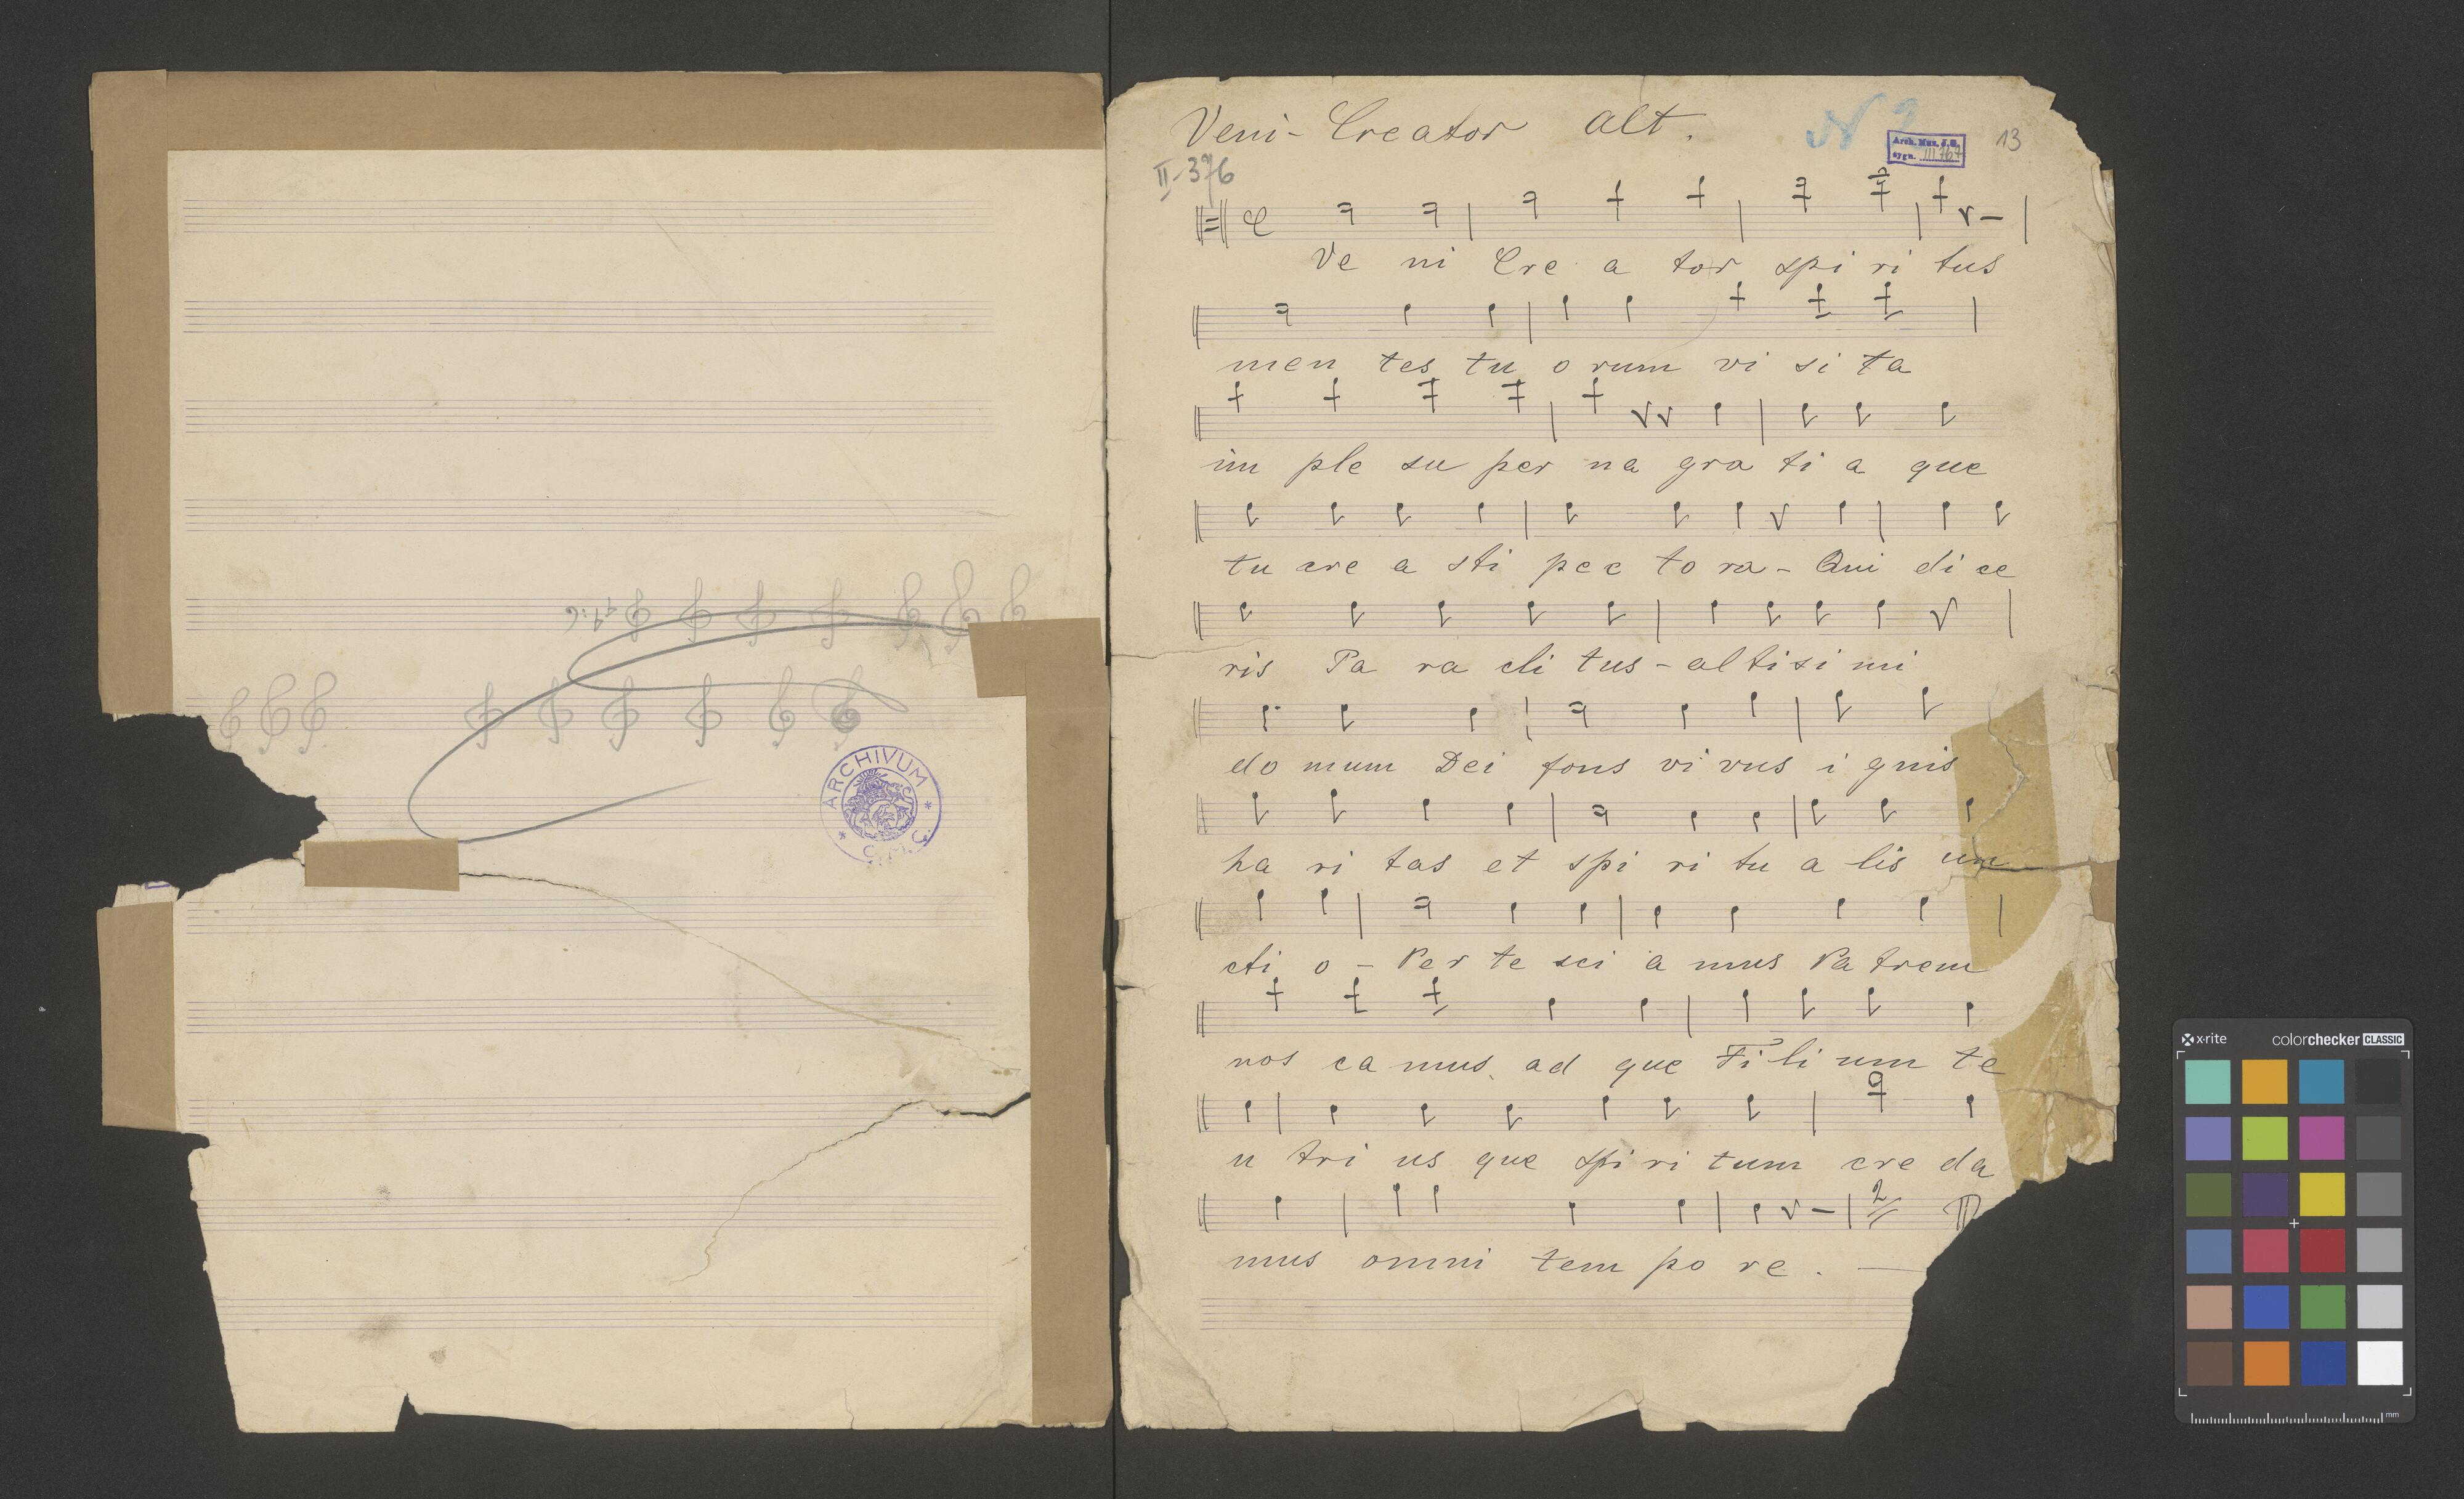 ARCHIVUM
Veni - Creator Alt.
13
Arch. Muz. J. G.
sygn. III 767
II-376
Ve ni Cre a tor spi ri tus
men tes tu o rum vi si ta
im ple su per na gra ti a que
tu cre a sti pec to ra - Qui di ce
ris Pa ra cli tus - al ti si mi
do mum Dei fons vi vus i gnis
ha ri tas et spi ri tu a lis un
cti o - Per te sci a mus Pa trem
nos ca mus ad que Fi li um te
u tri us que spi ri tum cre da
mus omni tem po re. —
x-rite colorchecker CLASSIC
mm